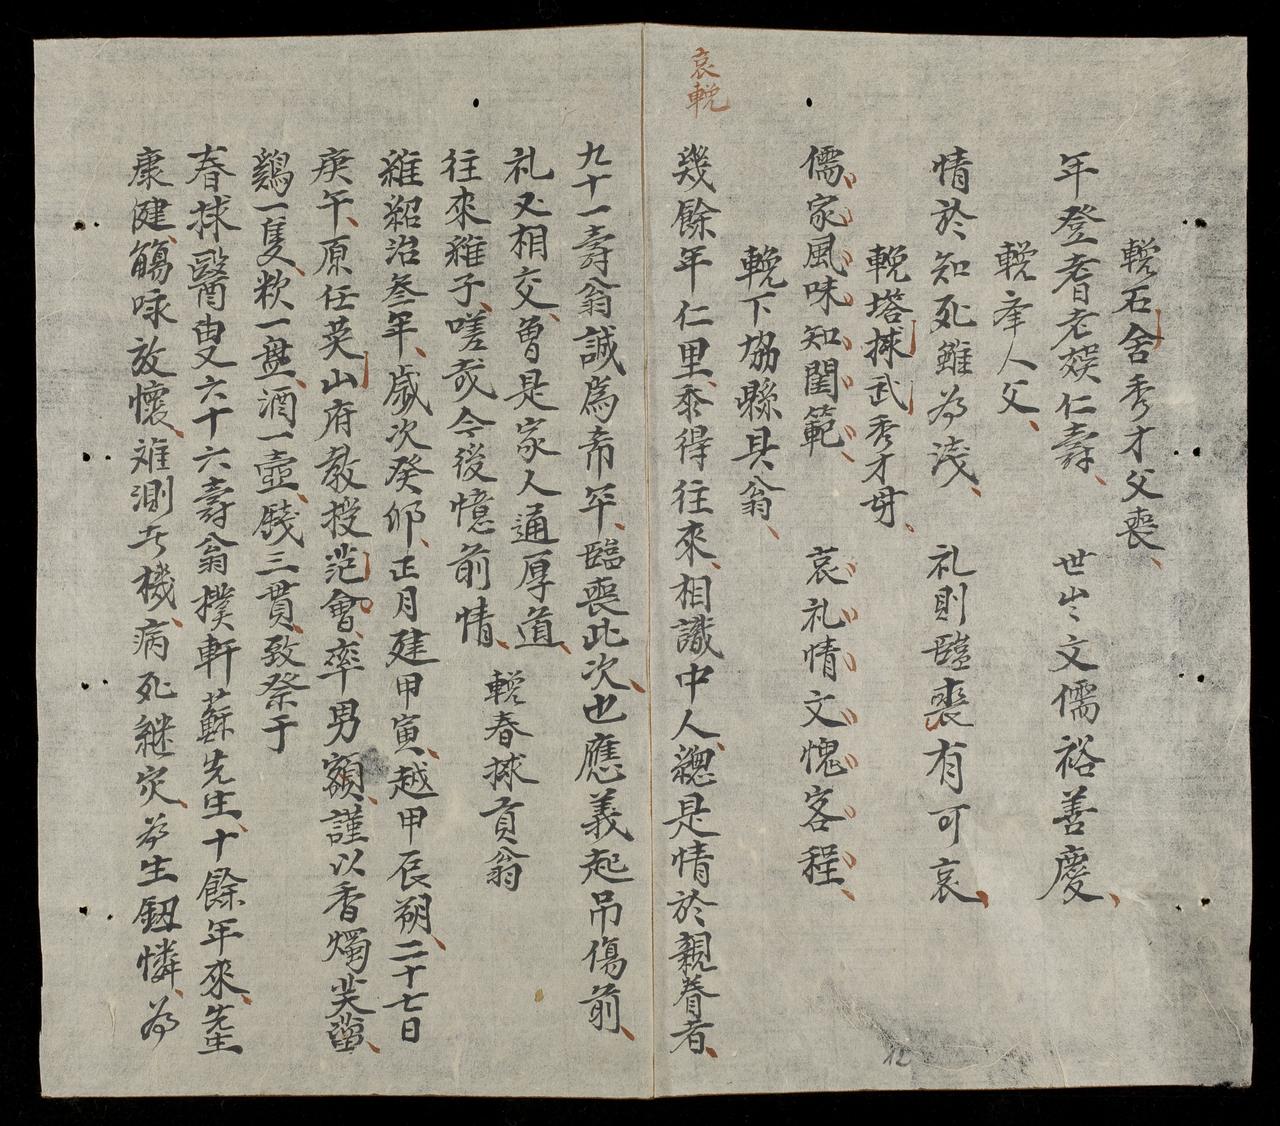 哀輓
輓石舍秀才父喪
年登耆老娱仁壽 世〻文儒裕善慶
輓奉人父
情於知死雖為浅 礼則臨喪有可哀
輓塔捄武秀才毋
儒家風味知閨範 哀礼情文愧客程
輓下協縣具翁
幾餘年仁里忝得往來相識中人總是情於親眷者
九十一壽翁誠為希罕臨喪此次也應義起吊傷前
礼又相交曾是家人通厚道
往來稚子嗟哉今後憶前情
輓春捄貢翁
維紹治叁年歲次癸卯正月建甲寅越甲辰朔二十七日
庚午原任英山府教授范會率男額謹以香燭芙蕾
鷄一隻粢一盘酒一壺餞三貫致祭于
春捄醫叟六十六壽翁樸軒蘇先生十餘年來先生
康健觴咏放懷难測者機病死継灾為生釼憐為
12